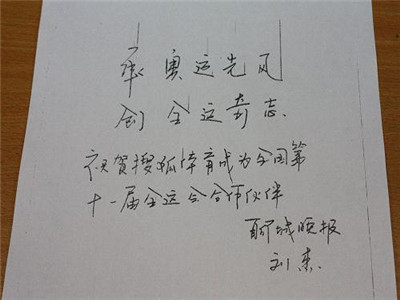 承奥运先风
创全运奇志
祝贺搜狐体育成为全国第
十一届全运会合作伙伴
聊城晚报
刘